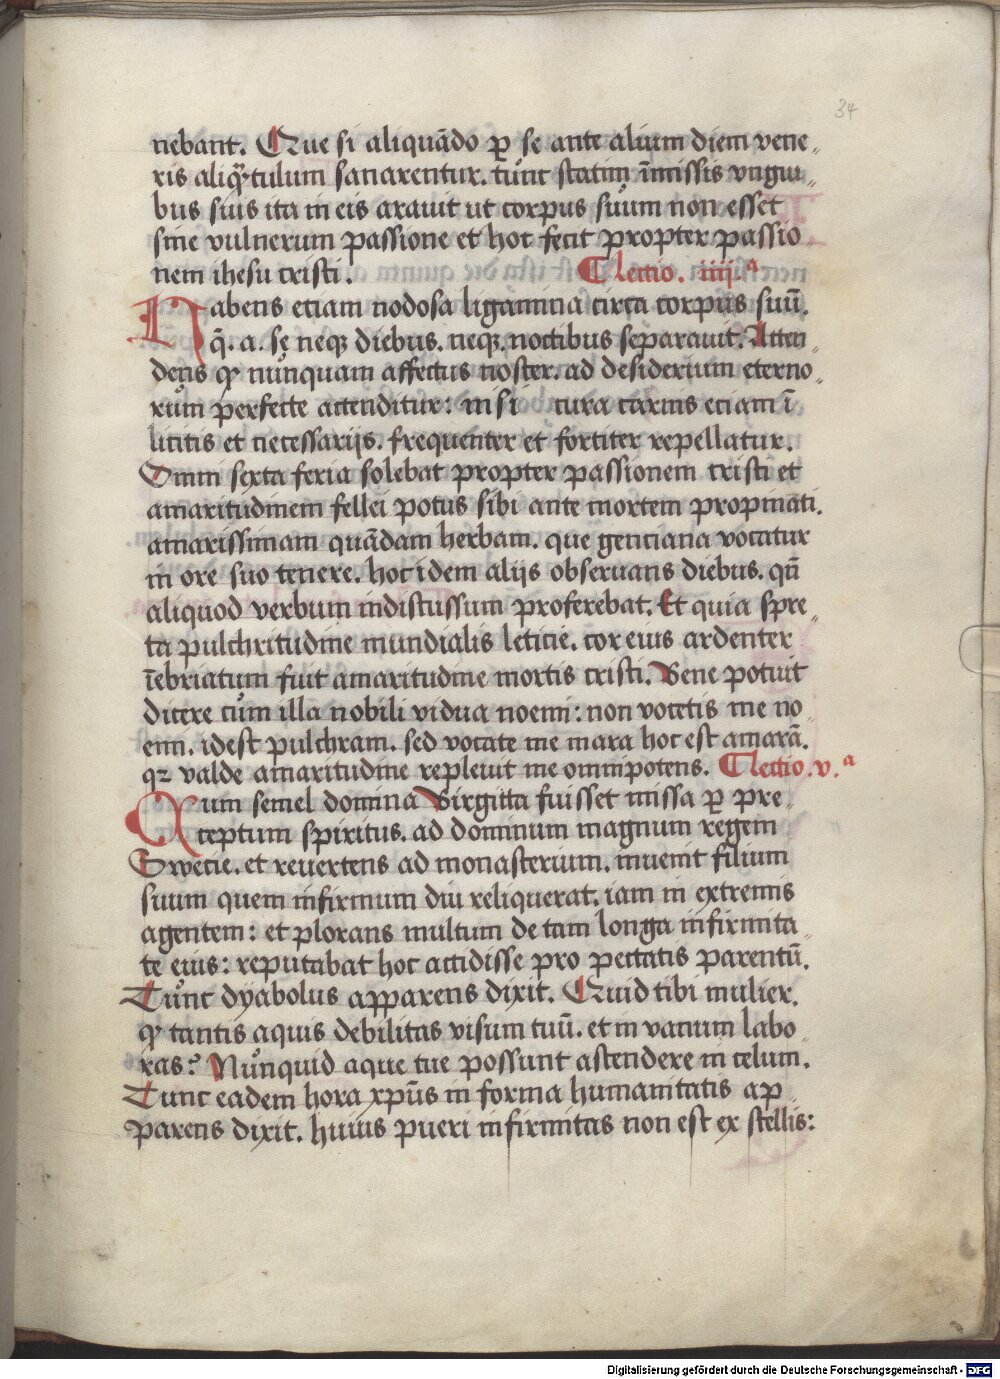 34
nebant. Que si aliquādo ꝑ se ante alium diem vene„
ris aliqꝫtulum sanarentur. tunc statim īmissis vngui„
bus suis ita in eis arauit ut corpus suum non esset
sine vulnerum passione et hoc fecit propter passio
nem ihesu cristi. Lectio. iiij.ª
Habens etiam nodosa ligamina circa corpus suū.
q̄. a. se neqꝫ diebus. neqꝫ. noctibus separauit. Atten„
dens ꝙ nunquam affectus noster. ad desiderium eterno„
rum perfecte accenditur: nisi cura carnis etiam ī
licitis et necessarijs. frequenter et fortiter repellatur.
Omni sexta feria solebat propter passionem cristi et
amaritudinem fellei potus sibi ante mortem propinati.
amarissimam quādam herbam. que genciana vocatur
in ore suo tenere. hoc idem alijs obseruans diebus. qn̄
aliquod verbum indiscussum proferebat. Et quia spre„
ta pulchritudine mundialis leticie. cor eius ardenter
īebriatum fuit amaritudine mortis cristi. Bene potuit
dicere cum illa nobili vidua noemi: non vocetis me no„
emi. idest pulchram. sed vocate me mara hoc est amarā.
qꝛ valde amaritudine repleuit me omnipotens. Lectio. v.ª
Cum semel domina Birgitta fuisset missa ꝑ pre„
ceptum spiritus. ad dominum magnum regem
Swecie. et reuertens ad monasterium. inuenit filium
suum quem infirmum diu reliquerat. iam in extremis
agentem: et plorans multum de tam longa infirmita„
te eius: reputabat hoc accidisse pro peccatis parentū.
Tunc dyabolus apparens dixit. Quid tibi mulier.
ꝙ tantis aquis debilitas visum tuū. et in vanum labo„
ras? Nunquid aque tue possunt ascendere in celum.
Tunc eadem hora xp̄us in forma humanitatis ap„
parens dixit. huius pueri infirmitas non est ex stellis:
Digitalisierung gefördert durch die Deutsche Forschungsgemeinschaft - DFG